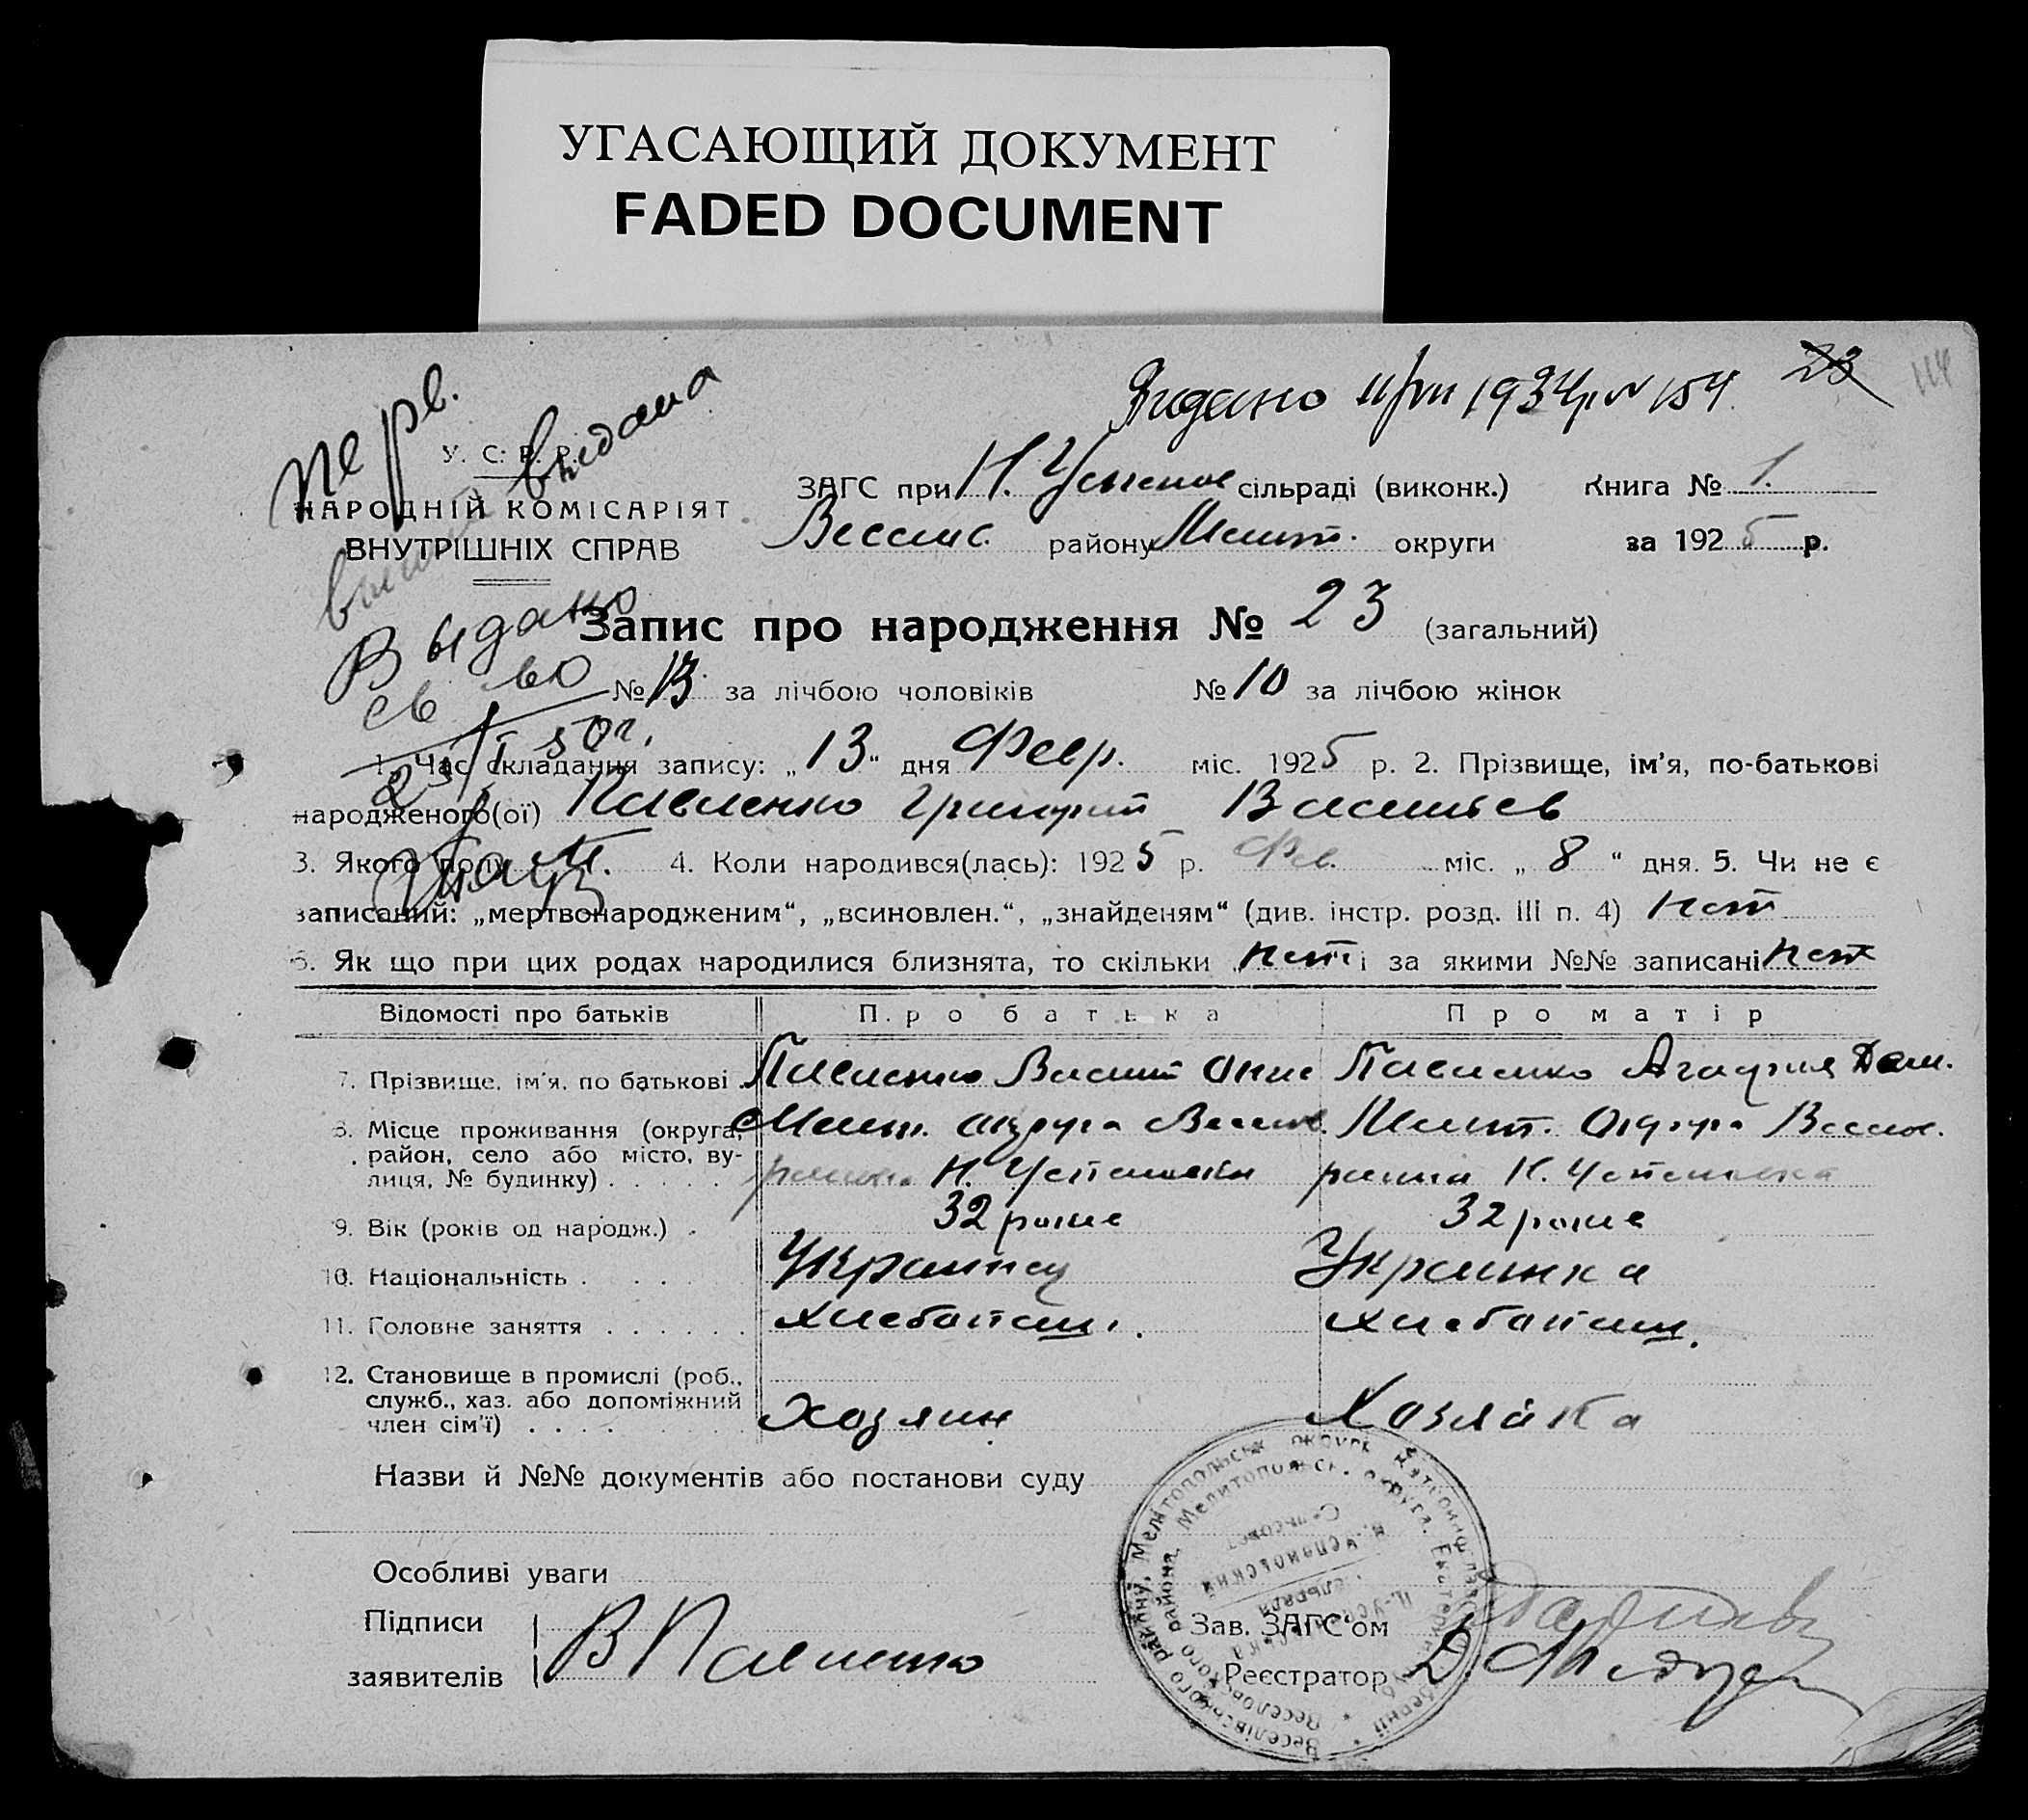 УГАСАЮЩИЙ ДОКУМЕНТ
FADED DOCUMENT
Видано 11/VII 1934р № 154 23 114
перв.
выдана
У. С. Р. Р.
НАРОДНІЙ КОМІСАРІЯТ
ВНУТРІШНІХ СПРАВ
ЗАГС при Н. Успенов сільраді (виконк.) Книга № 1.
Веселов. району Мелит. округи за 1925 р.
Выдано
св во
50г.
Запис про народження № 23 (загальний)
№ 13 за лічбою чоловіків № 10 за лічбою жінок
1. Час складання запису: „13“ дня Февр. міс. 1925 р. 2. Прізвище, ім’я, по-батькові
народженого(ої) Павленко Григорий Васильев
3. Якого полу М. 4. Коли народився(лась): 1925 р. Фев. міс. „8“ дня. 5. Чи не є
записаний: „мертвонародженим“, „всиновлен.“, „знайденям“ (див. інстр. розд. III п. 4) нет
6. Як що при цих родах народилися близнята, то скільки нет і за якими №№ записані нет
Відомості про батьків Про батька Про матір
7. Прізвище, ім’я, по батькові Павленко Василий Онис Павленко Агафия Дем.
8. Місце проживання (округа, район, село або місто, вулиця, № будинку) Мелит. округа Веселов. района Н. Успеновка Мелит. Округа Веселов. района Н. Успеновка
9. Вік (років од народж.) 32 роки 32 роки
10. Національність Украинец Украинка
11. Головне заняття хлебопаш. хлебопаш.
12. Становище в промислі (роб., служб., хаз. або допоміжний член сім’ї) Хозяин Хозяйка
Назви й №№ документів або постанови суду
Особливі уваги
Підписи
заявителів В Павленко
Зав. ЗАГС’ом
Реєстратор
Веселівського району, Мелітопольськ. округи, Катеринославської губерній
Веселовского района, Мелитопольск. округа, Екатерин.
Н.-Успеновский
Сельсовет